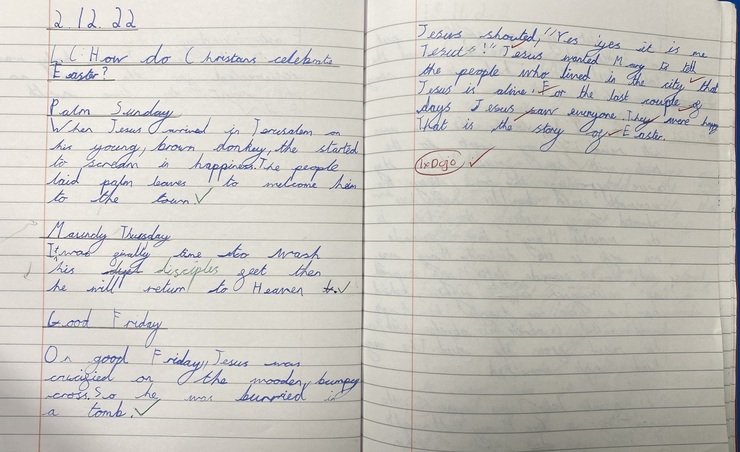 2.12.22
L.C: How do Christans celebrate
Easter?
Palm Sunday
When Jesus arrived in Jerusalem on
his young, brown donkey, the started
to scream in happiness. The people
laid palm leaves to welcome him
to the town.
Maundy Thursday
It was finally time to wash
his disciples feet then
he will return to Heaven
Good Friday
On good Friday, Jesus was
crucified on the wooden, bumpy
cross. So he was burried in
a tomb.
Jesus shouted, "Yes yes it is me
Jesus!" Jesus wanted Mary to tell
the people who lived in the city that
Jesus is alive. For the last couple of
days Jesus saw everyone. They were happy
That is the story of Easter.
1xDojo